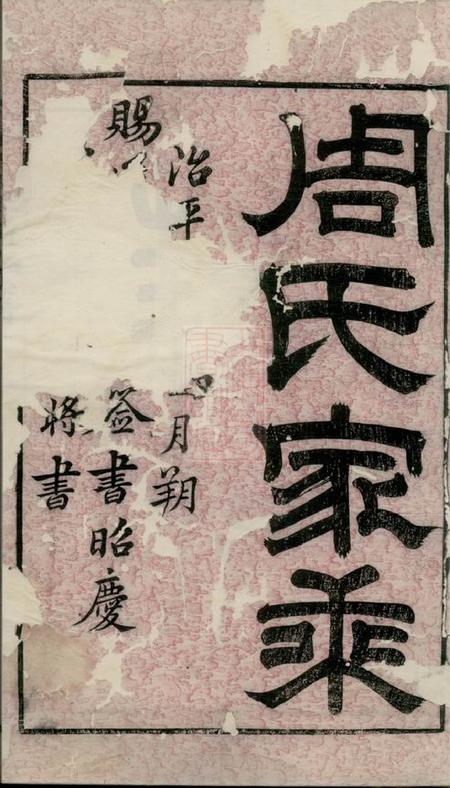 周氏家乘
治平 月朔
賜 簽書昭慶
將書